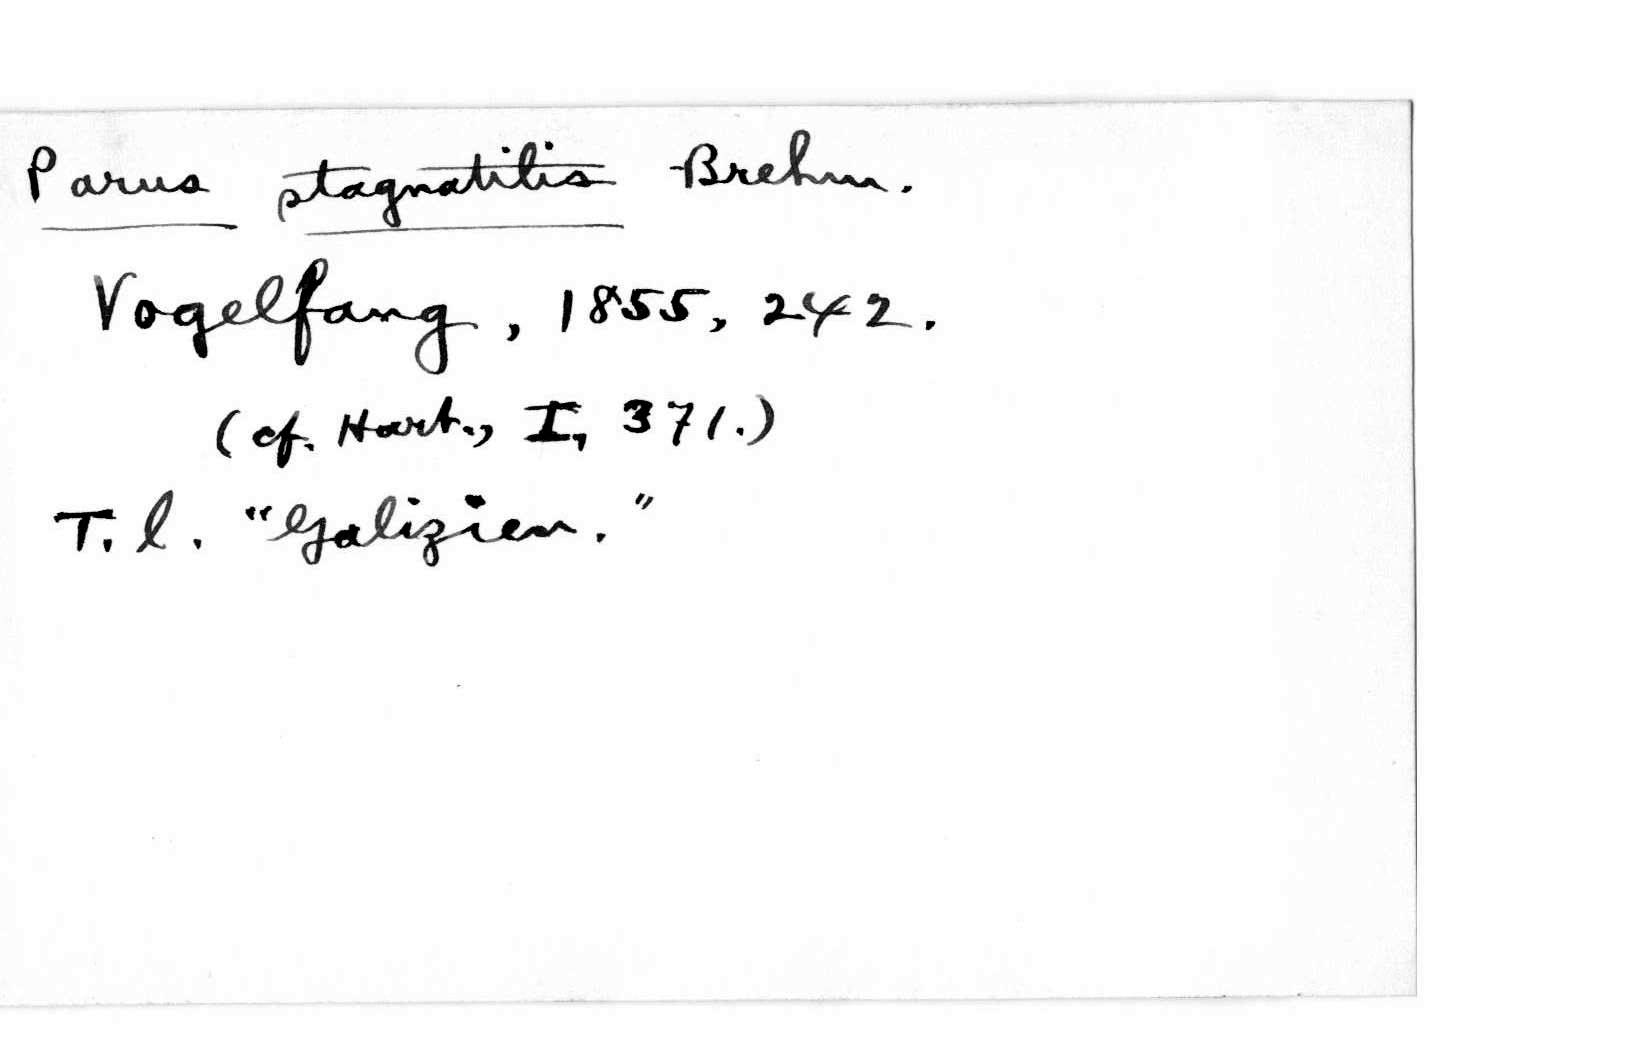 Parus stagnatilis Brehm.
Vogelfang, 1855, 242.
(cf. Hart., I, 371.)
T. l. "Galizien."